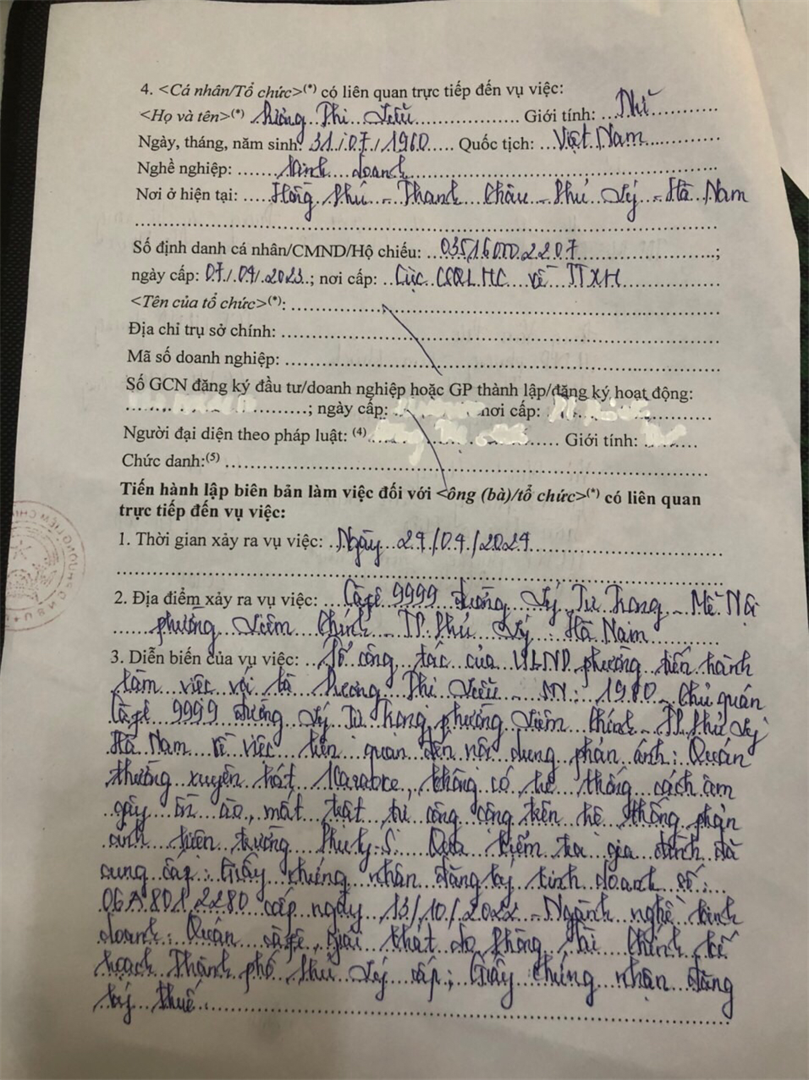 4. <Cá nhân/Tổ chức>(*) có liên quan trực tiếp đến vụ việc:
<Họ và tên>(*) Dương Thị Liễu Giới tính: Nữ
Ngày, tháng, năm sinh: 31/07/1960 Quốc tịch: Việt Nam
Nghề nghiệp: Kinh doanh
Nơi ở hiện tại: Hồng Phú - Thanh Châu - Phủ Lý - Hà Nam
Số định danh cá nhân/CMND/Hộ chiếu: ;
ngày cấp: ; nơi cấp: Cục CSQLHC về TTXH
<Tên của tổ chức>(*):
Địa chỉ trụ sở chính:
Mã số doanh nghiệp:
Số GCN đăng ký đầu tư/doanh nghiệp hoặc GP thành lập/đăng ký hoạt động:
; ngày cấp: nơi cấp:
Người đại diện theo pháp luật: (4) Giới tính:
Chức danh:(5)
Tiến hành lập biên bản làm việc đối với <ông (bà)/tổ chức>(*) có liên quan
trực tiếp đến vụ việc:
1. Thời gian xảy ra vụ việc: Ngày
2. Địa điểm xảy ra vụ việc: Càfê 9999 đường Lý Tự Trọng - Mễ Nội
phường Liêm Chính - TP. Phủ Lý - Hà Nam
3. Diễn biến của vụ việc: Tổ công tác của UBND phường tiến hành
làm việc với bà Dương Thị Liễu - SN: 1960 - Chủ quán
Càfê 9999 đường Lý Tự Trọng, phường Liêm Chính - TP. Phủ Lý
Hà Nam về việc liên quan đến nội dung phản ánh: Quán
thường xuyên hát Karaoke, không có hệ thống cách âm
gây ồn ào, mất trật tự công cộng trên hệ thống phản
ánh hiện trường Phủ Lý-S. Qua kiểm tra gia đình đã
cung cấp: Giấy chứng nhận đăng ký kinh doanh số:
06A8012280 cấp ngày 13/10/2022 - Ngành nghề kinh
doanh: Quán càfê, giải khát do Phòng Tài chính kế
hoạch Thành phố Phủ Lý cấp; Giấy chứng nhận đăng
ký thuế.